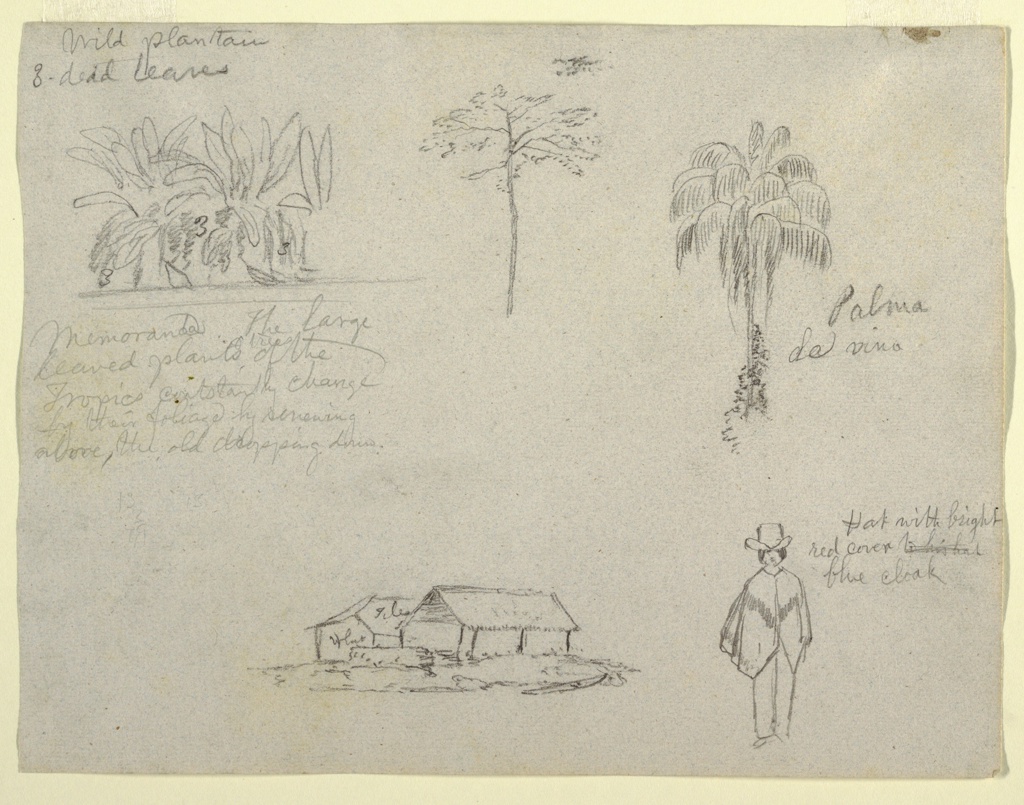 Wild plantain
3-dead leaves
3
3
3
Memoranda. The large
leaved plants of the
Tropics constantly change
by their foliage by renewing
above, the old dropping down.
Palma
de vino
Hat with bright
red cover to his hat
blue cloak